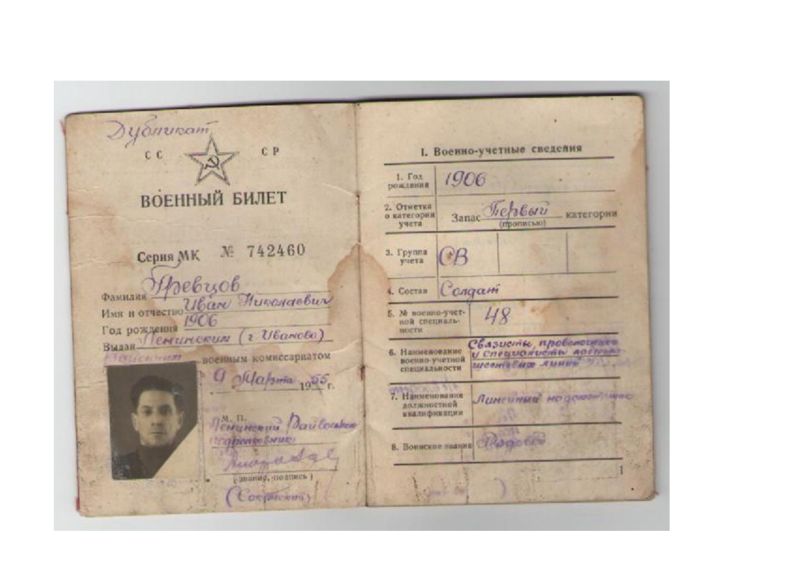 Дубликат
СС СР
ВОЕННЫЙ БИЛЕТ
Серия МК № 742460
Фамилия Гревцов
Имя и отчество Иван Николаевич
Год рождения 1906
Выдан Ленинским (г. Иваново)
военным комиссариатом
9 Марта 1955 г.
М. П.
Ленинский Райвоенком
подполковник
(звание, подпись)
I. Военно-учетные сведения
1. Год рождения 1906
2. Отметка о категории учета Запас Первый категории
(прописью)
3. Группа учета СВ
4. Состав Солдат
5. № военно-учетной специальности 48
6. Наименование военно-учетной специальности Связисты проволочной
и специалисты
линий
7. Наименование должностной квалификации Линейный надсмотрщик
8. Воинское звание Рядовой
1